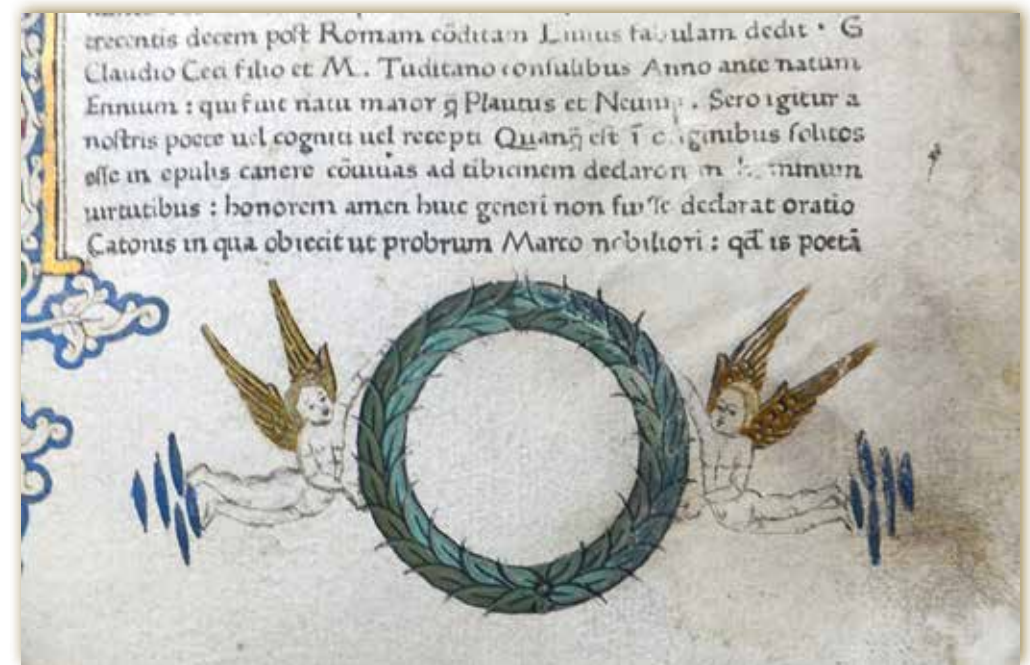 trecentis decem post Romam cōditam Liuius fabulam dedit · G
Claudio Ceci filio et M. Tuditano consulibus Anno ante natum
Ennium : qui fuit natu maior q̄ Plautus et Neuius . Sero igitur a
nostris poete uel cogniti uel recepti Quanq̄ est ī originibus solitos
esse in epulis canere cōuiuas ad tibicinem de claro℞ hominum
uirtutibus : honorem tamen huic generi non fuisse declarat oratio
Catonis in qua obiecit ut probrum Marco nobiliori : qđ is poetā